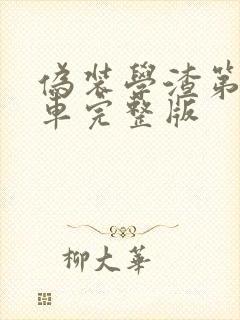 偽裝學渣第
車完整版
柳大華